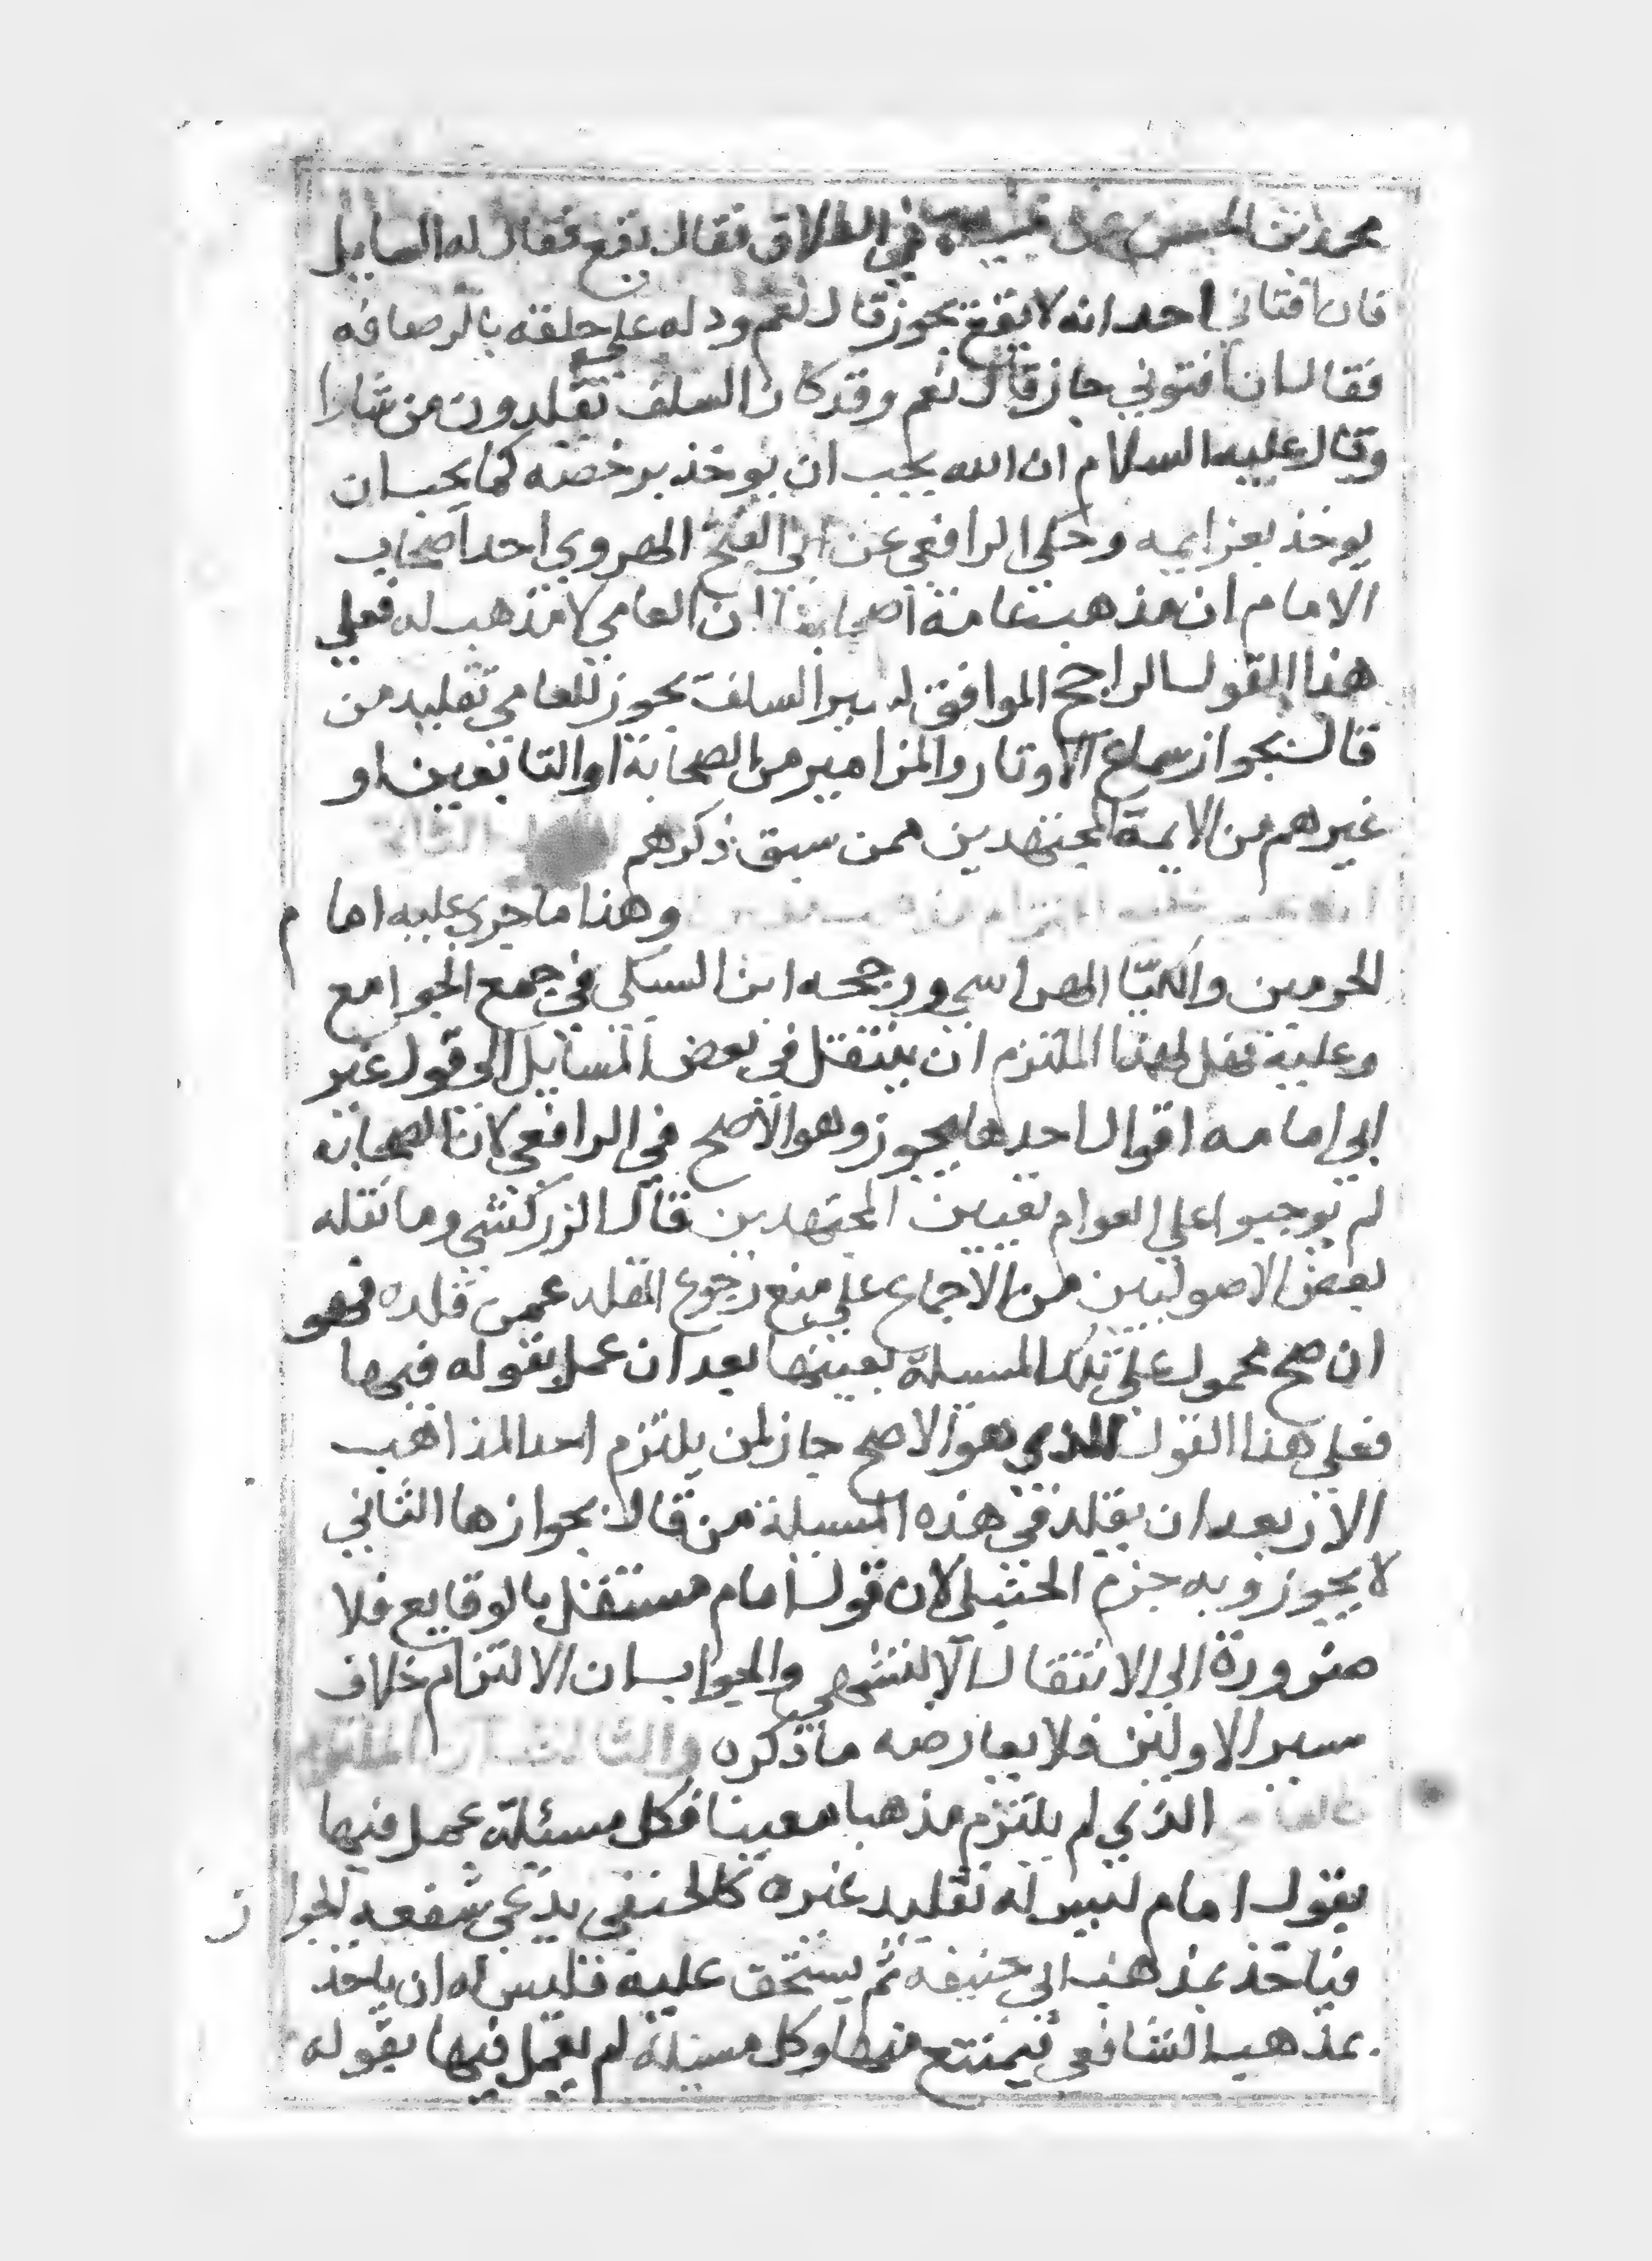 محمد بن الحسن عن في الطلاق فقال يقع فقال له السايل
فان افتاني احد انه لا يقع يجوز قال نعم ودله على حلقه بالرصافه
فقال ان افتوني جاز قال نعم وقد كان السلف يقلدون من شاوا
وقال عليه السلام ان الله يحب ان يوخذ برخصه كما يحب ان
يوخذ بعزايمه وحكي الرافعي عن ابي الفتح الهروي احد اصحاب
الامام ان مذهب عامة اصحابنا ان العامي لا مذهب له فعلي
هذا القول الراجح الموافق لسير السلف يجوز للعامي تقليد من
قال بجواز سماع الاوتار والمزامير من الصحابة او التابعين او
غيرهم من الايمة المجتهدين ممن سبق ذكرهم
وهذا ما جري عليه امام
الحرمين والكيّا الهراسي ورجحه ابن السبكي في جمع الجوامع
وعلية فهل لهذا الملتزم ان ينتقل في بعض المسايل الي قول غير
ابي امامه اقوال احدها يجوز وهو الاصح في الرافعي لان الصحابه
لم يوجبوا علي العوام تعيين المجتهدين قال الزركشي وما نقله
بعض الاصوليين من الاجماع علي منع رجوع المقلد عمن قلده فهو
ان صح محمول علي تلك المسيلة بعينها بعد ان عمل بقوله فيها
فعلي هذا القول الذي هو الاصح جاز لمن يلتزم احد المذاهب
الاربعه ان يقلد في هذه المسيلة من قال بجوازها الثاني
لا يجوز وبه جزم الحنبلي لان قول امام مستقل بالوقايع فلا
ضرورة الي الانتقال الا للتشهي والجواب ان الالتزام خلاف
سير الاولين فلا يعارضه ما ذكره والثالث ان الملتزم
كالعامي الذي لم يلتزم مذهبا معينا فكل مسئلة عمل فيها
بقول امام ليس له تقليد غيره كالحنفي يدعي شفعه للجوار
فياخذ بمذهب ابي حنيفه ثم يستحق عليه فليس له ان ياخذ
بمذهب الشافعي فيمتنع منها وكل مسيلة لم يعمل فيها بقوله